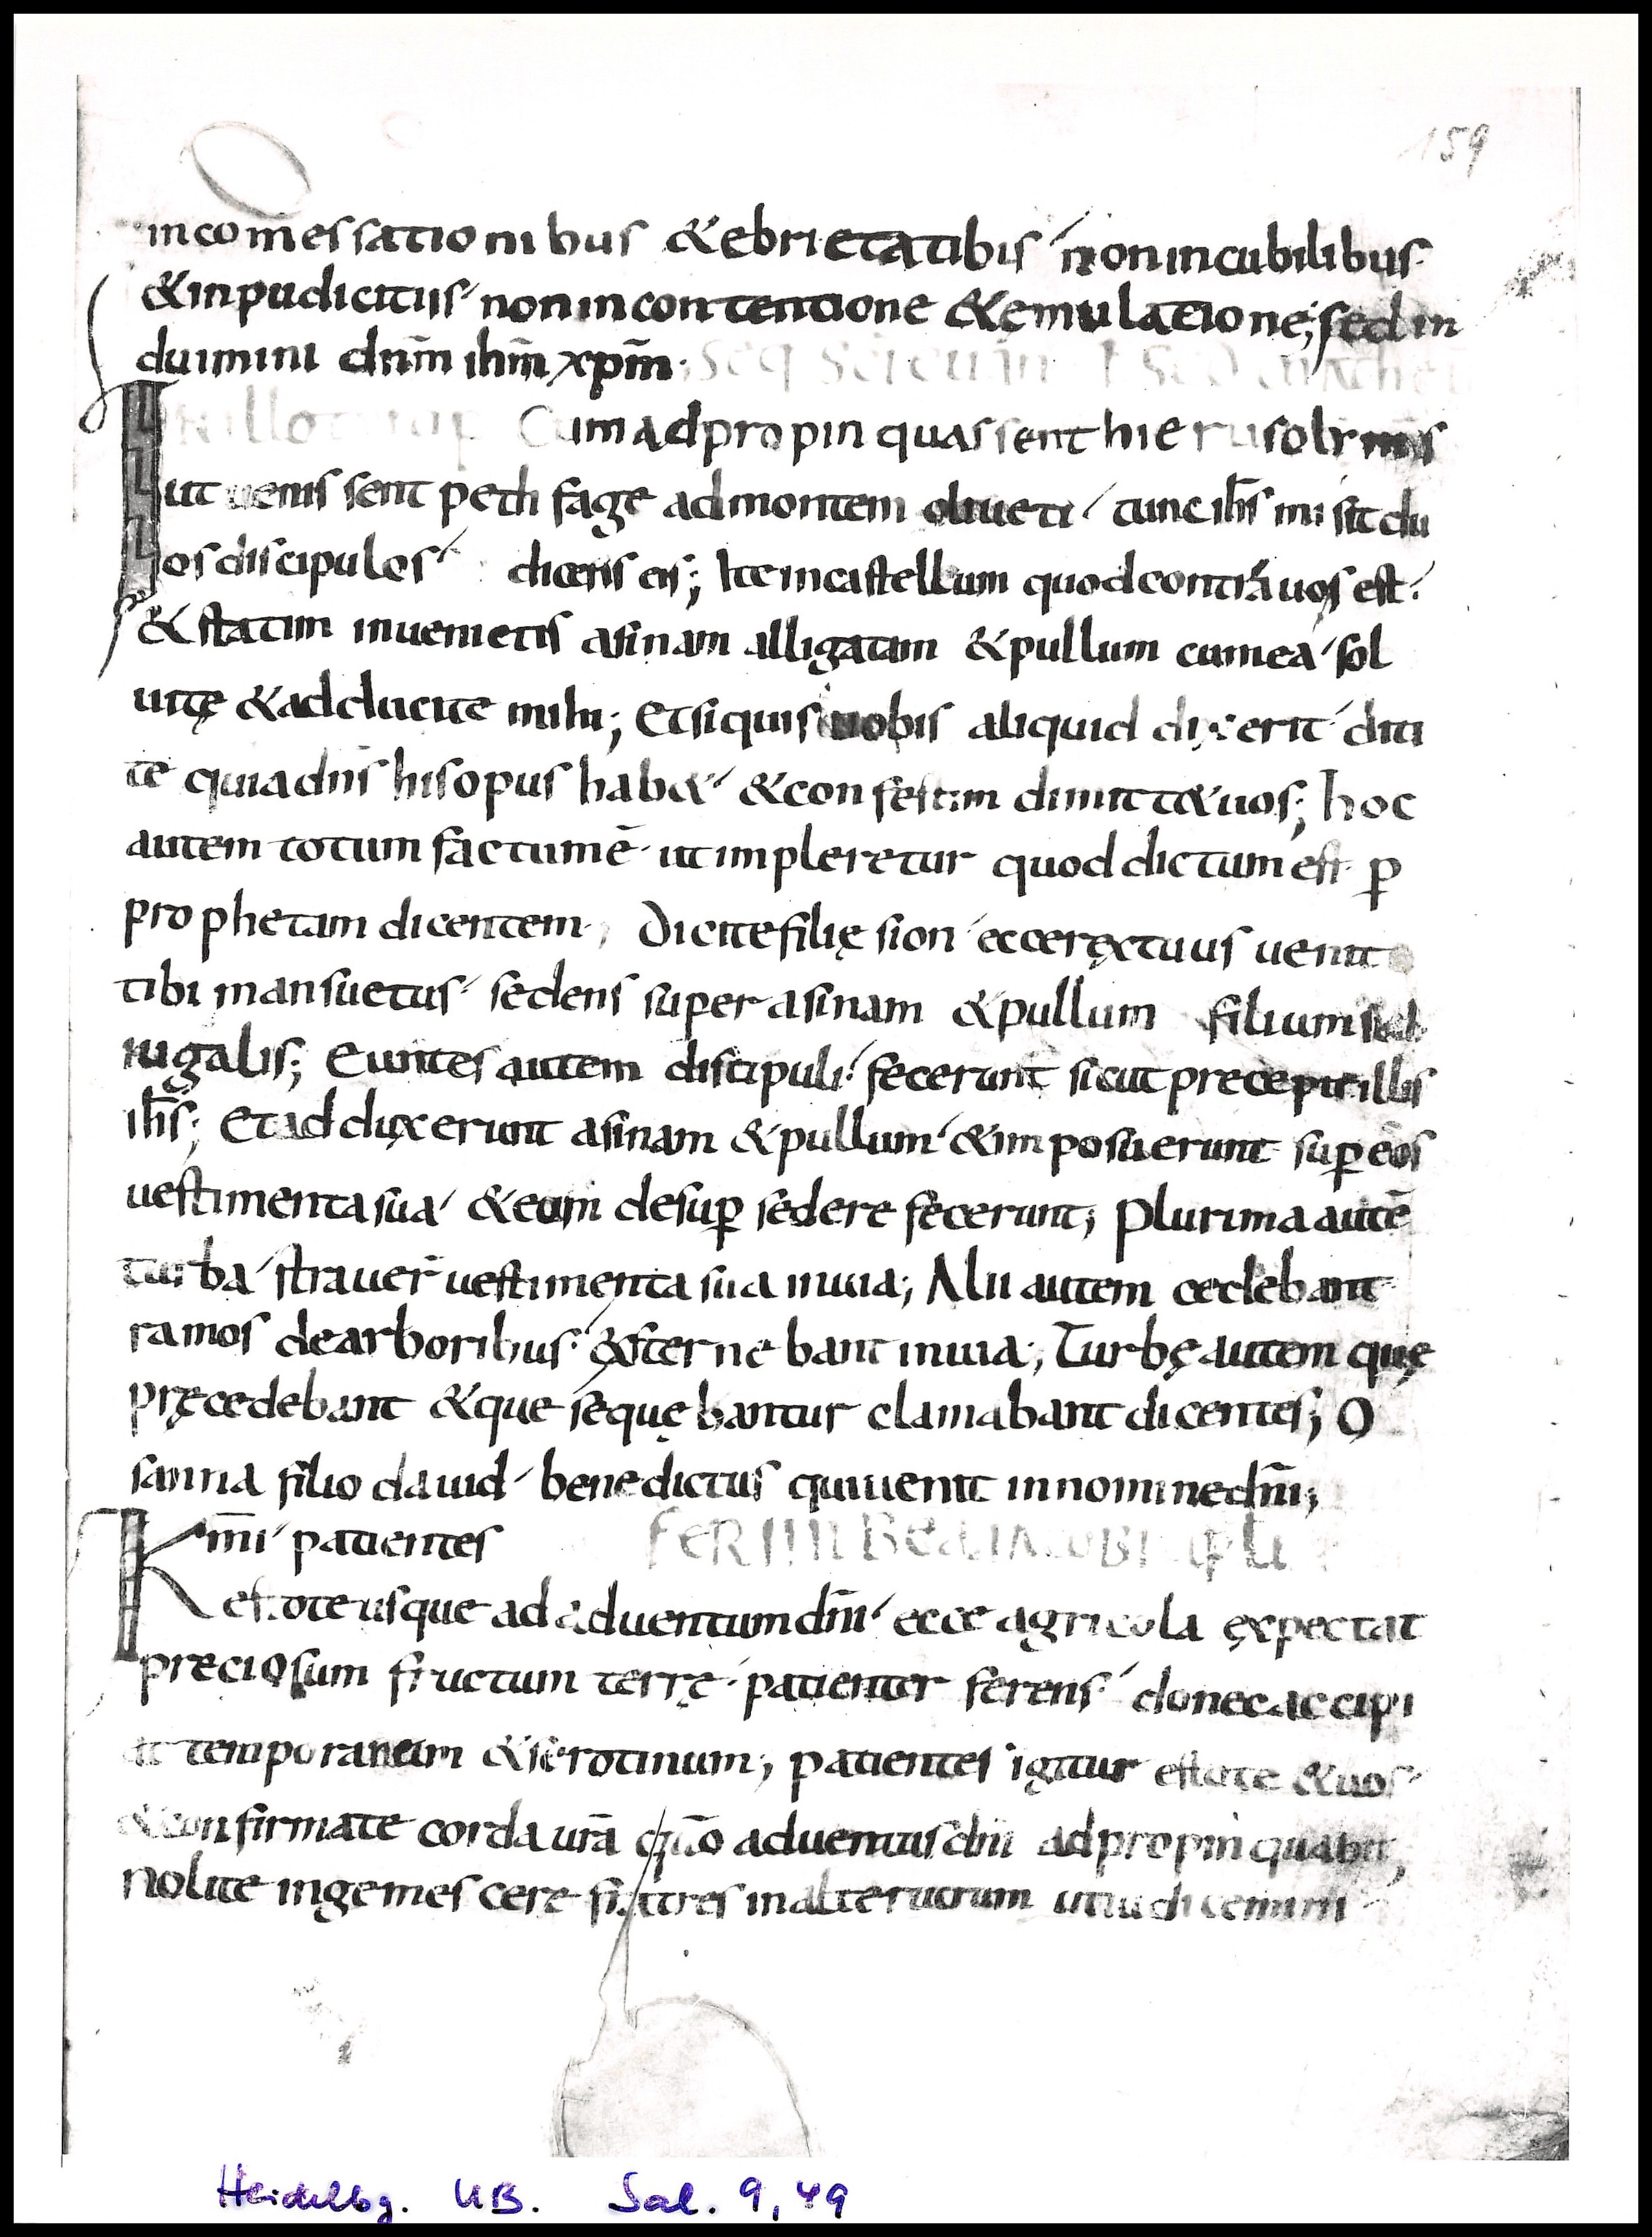 159
incomessationibus & ebrietatibis non incubilibus
& inpudicitiis non in contentione & ęmulatione; sed in
duimini dnm̄ ihm̄ xpm̄. Seq sc̄i eu
In illo Cum adpropinquassent hierusolimis
ut uenissent peth fage ad montem oliueti tunc ih̄s misit du
os discipulos dicens eis; Ite in castellum quod contra uos est
& statim inuenietis asinam alligatam & pullum cum ea sol
uitę & adducite mihi; Et si quis uobis aliquid dixerit diti
te quia dns̄ his opus hab& & confestim dimitt& uos; hoc
autem totum factum ē ut impleretur quod dictum est p̱
prophetam dicentem; Dicite filię sion ecce ręx tuus uenit
tibi mansuetus sedens super asinam & pullum filium sub
iugalis; Euntes autem discipuli fecerunt sicut precepit illis
ih̄s; Et adduxerunt asinam & pullum & imposuerunt sup̱ eos
uestimenta sua & eum desup̱ sedere fecerunt; Plurima autē
turba strauer̄ uestimenta sua in uia; Alii autem cedebant
ramos de arboribus & sternebant in uia; Turbę autem quę
pręcedebant & que sequębantur clamabant dicentes; O
sanna filio dauid benedictus qui uenit in nomine dn̄i;
Km̄i patientes FER IIII BEATI IACOBI APLI
estote usque ad aduentum dn̄i ecce agricola expectat
preciosum fructum terrę patienter ferens donec accipi
at temporaneum & serotinum; patientes igitur estote & uos
& confirmate corda urā qūo aduentus dn̄i adpropinquabit;
Nolite ingemescere fratres in alterutrum ut iudicemini
Heidelbg. UB. Sal. 9, 49